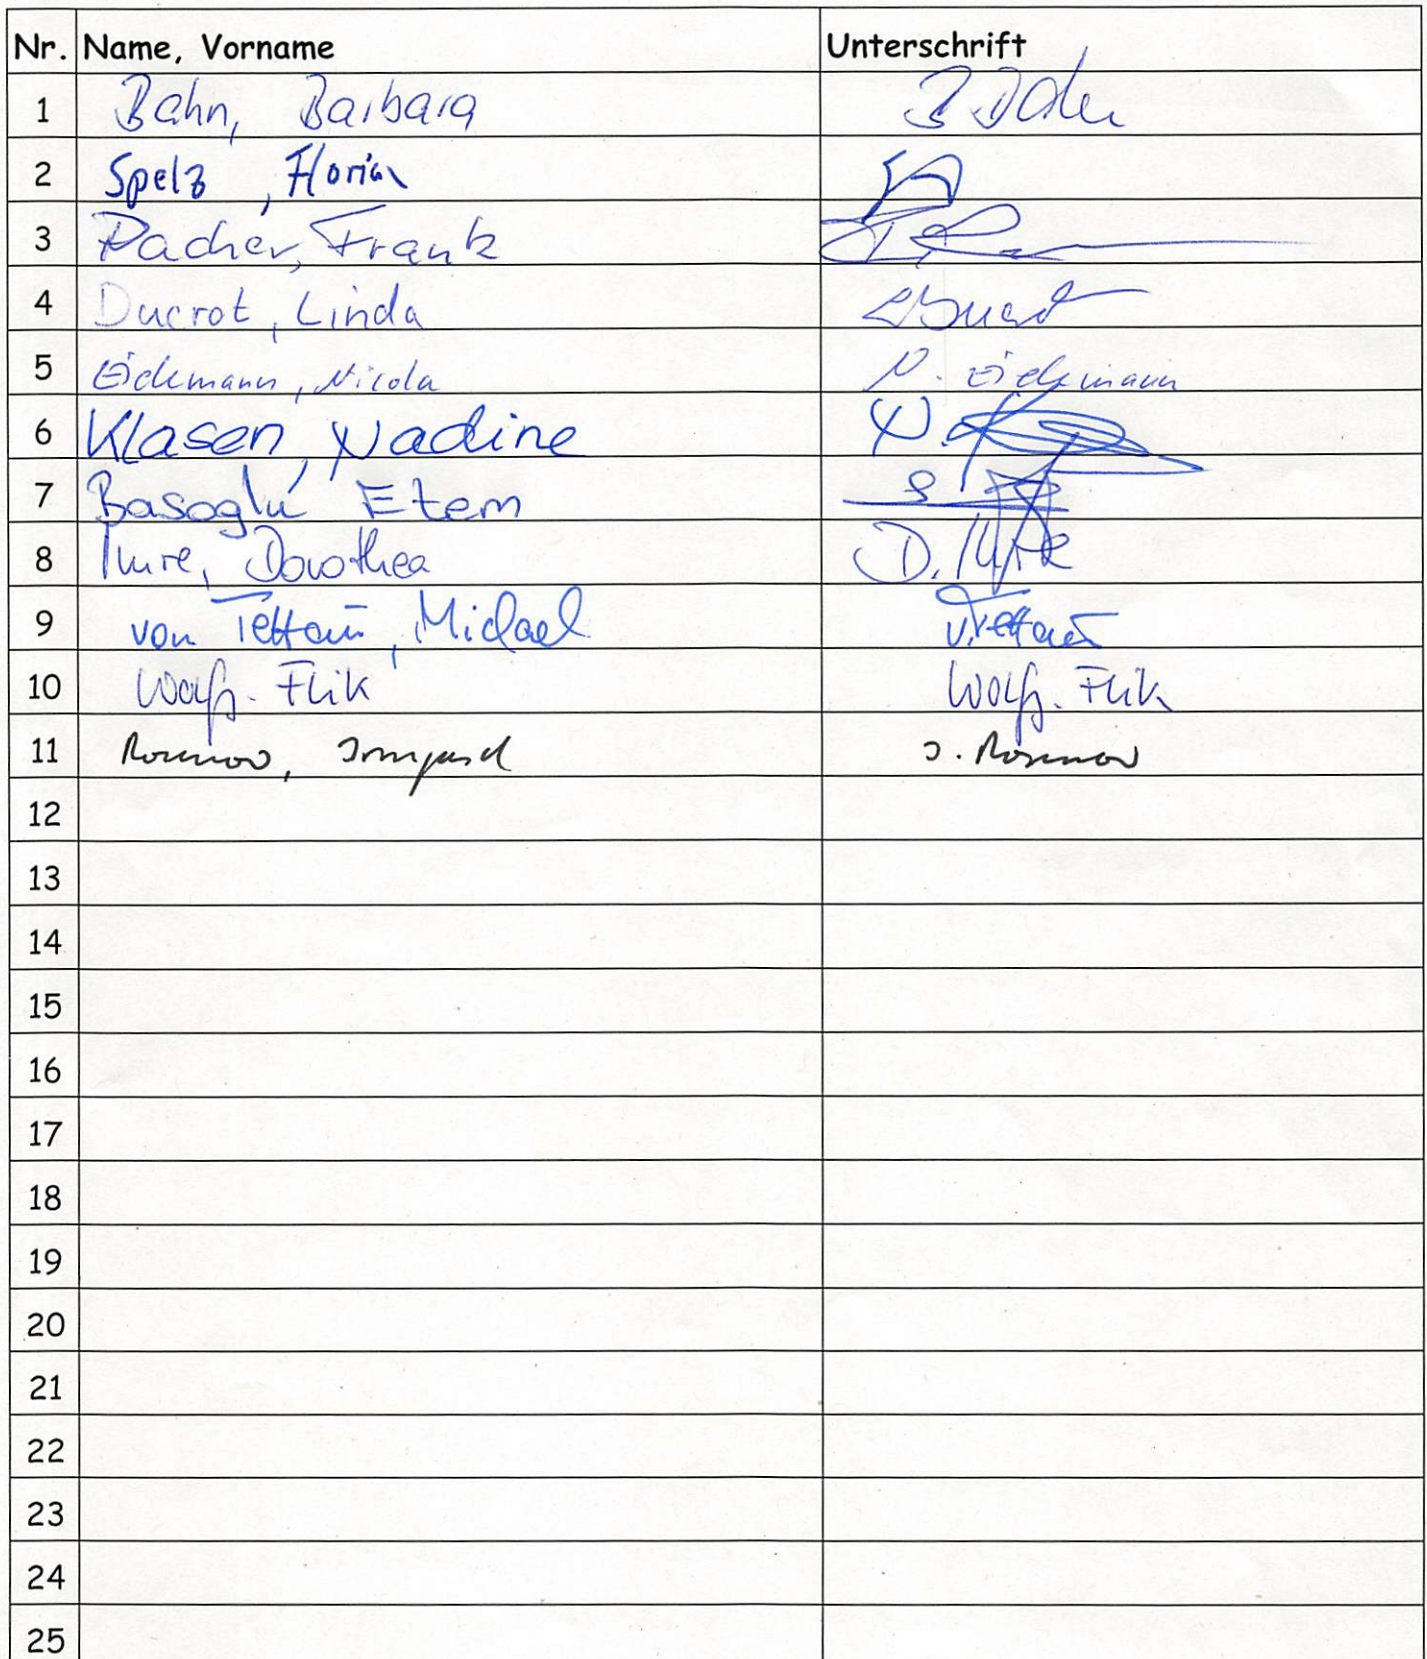 Nr. Name, Vorname Unterschrift
1 Bahn, Barbara
2 Spelz, Florian
3 Pacher, Frank
4 Ducrot, Linda
5 Eickmann, Nicola N. Eickmann
6 Klasen, Nadine N.
7 Basoglu Etem
8 Imre, Dorothea D. Imre
9 von Tettau, Michael v. Tettau
10 Wolfg. Flik Wolfg. Flik
11 Rosenow, Irmgard I. Rosenow
12
13
14
15
16
17
18
19
20
21
22
23
24
25